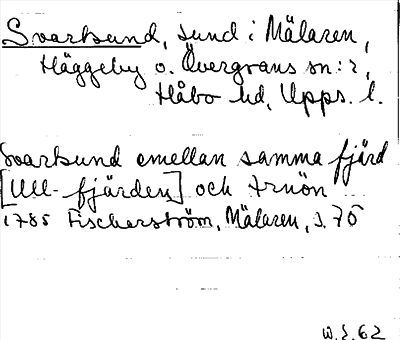 Svartsund, sund i Mälaren,
Häggeby o. Övergrans sn:r,
Håbo hd, Upps. l.
Svartsund emellan samma fjärd
[Ull-fjärden] och Arnön
1785 Fischerström, Mälaren, s. 75
W.E. 62